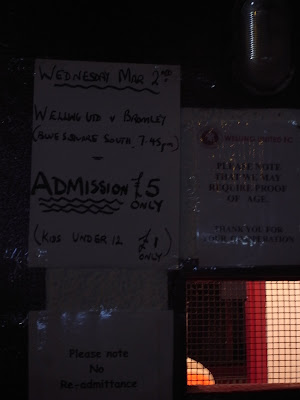 WEDNESDAY MAR 2ND
WELLING UTD V BROMLEY
(BLUE SQUARE SOUTH, 7.45pm)
-
ADMISSION £5
ONLY
(KIDS UNDER 12 £1
ONLY)
WELLING UNITED F.C.
PLEASE NOTE
THAT WE MAY
REQUIRE PROOF
OF AGE.
THANK YOU FOR
YOUR CO-OPERATION
Please note
No
Re-admittance